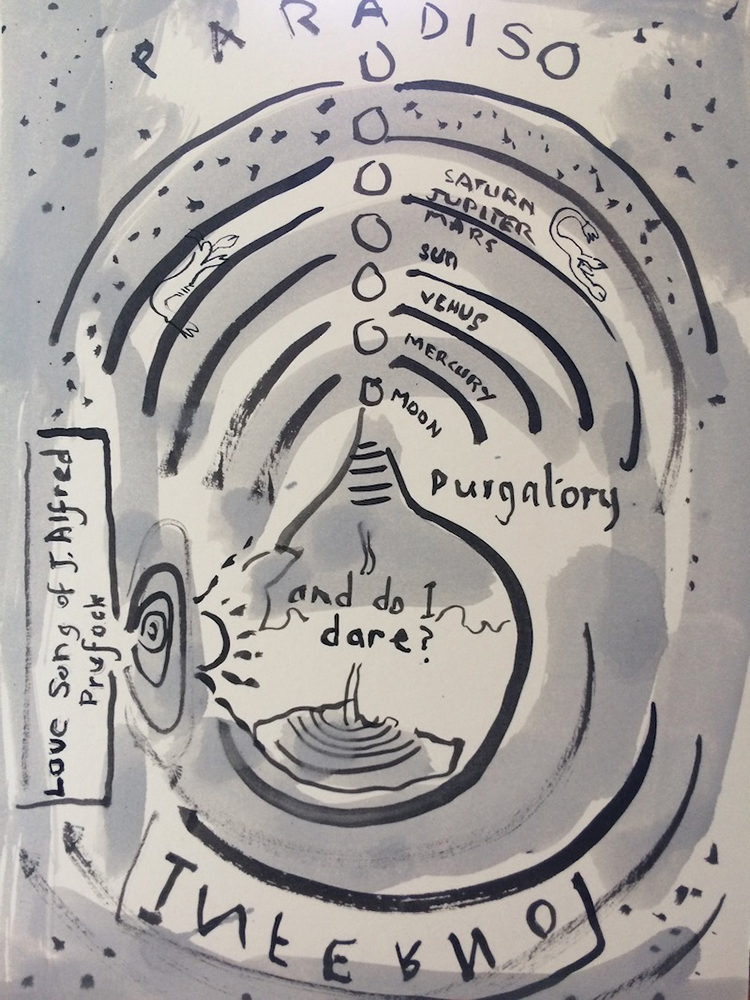 PARADISO
SATURN
JUPITER
MARS
SUN
VENUS
MERCURY
MOON
purgatory
Love Song of J. Alfred
Prufock
and do I
dare?
INFERNO